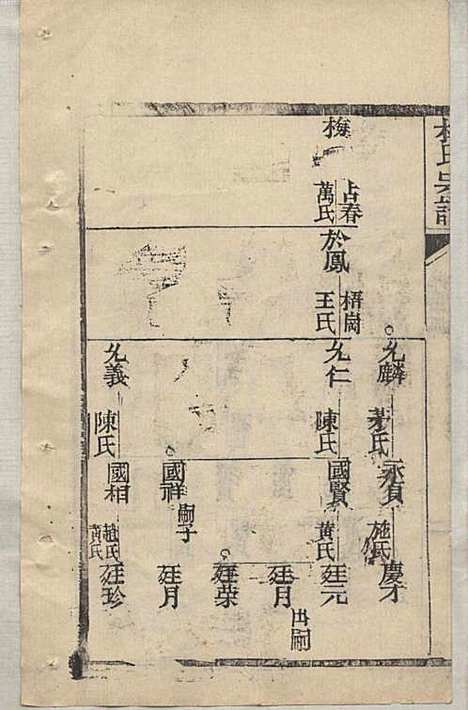 林氏宗譜
梅
占春
萬氏
於鳳
梧崗
王氏
允麟
茅氏
允仁
陳氏
允義
陳氏
永貞
施氏
國賢
黄氏
國祥
嗣子
國相
趙氏
黄氏
慶才
廷元
廷月
出嗣
廷荣
廷月
廷珍